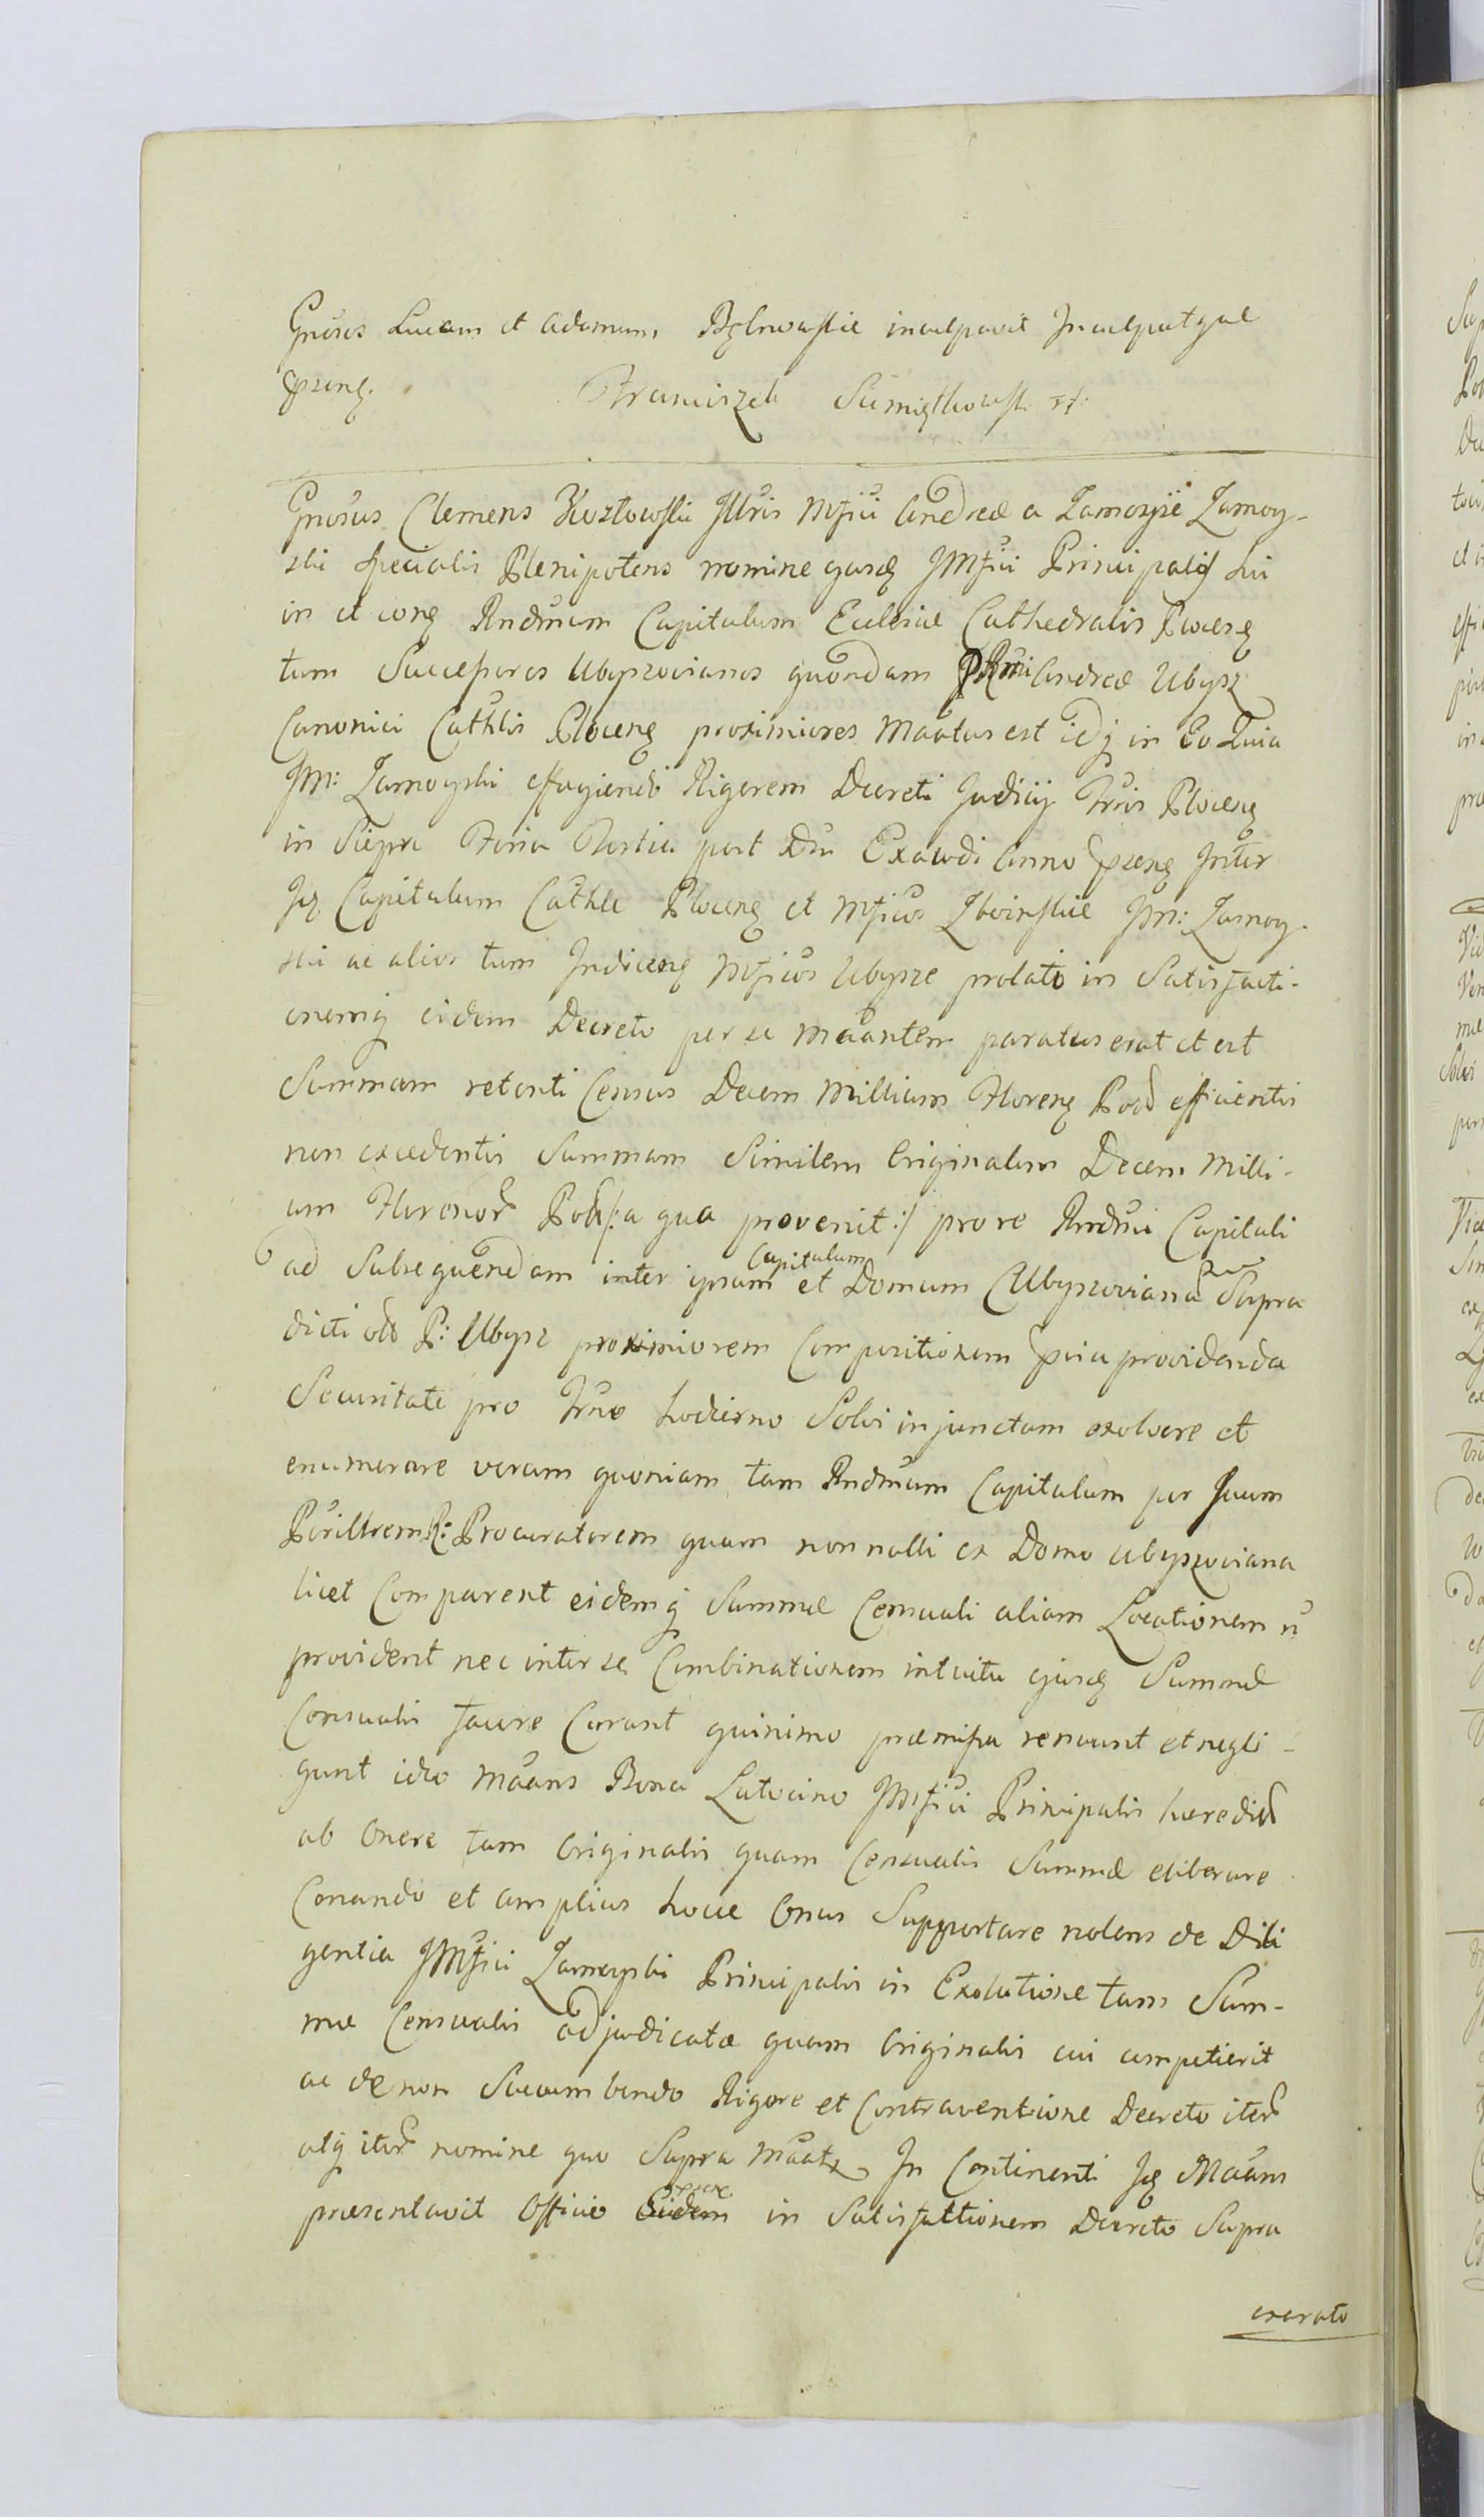 Gnosos Lucam et Adamum, inculpavit Inculpatque
praeng. Franciszek
Gnosus Clemens Kozłowski Illris Mfici Andreae a Zamoyście Zamoy-
ski specialis Plenipotens nomine ejusd Imfici Principalis sui
in et cong Rndmum Capitulum Ecclesiae Cathedralis Plocensg
tum Successores Ubyszovianos quondam PRmi Andreae Ubysz
Canonici Cathlis Plocensg proximiores Maatus est idq in Eo Quia
Im: Zamoyski effugiendo Rigorem Decreti Judicij Trris Plocensg
in Sierpc Feria Tertia post Dm Exaudi Anno praeng Inter
Jq Capitulum Cathle Plocensg et Mficos Zboinskie Im: Zamoy-
ski ac alios tum Indicensg Mficos Ubysze prolato in Satisfacti-
onemq eidem Decreto per se Maantem paratus erat et est
Summam retenti Census Decem Millium Floreng Pold efficientis
non excedentis Summam Similem Originalem Decem Milli-
um Florenor Pold /:a qua provenit:/ pro re Rndmi Capituli
ad Subsequendam inter ipsum Capitulum et Domum Ubyszoviana Supra
dicti olb P: Ubysz proximiorem Compositionem pvia providenda
Securitate pro Trno hodierno Solvi injunctam exolvere et
enumerare verum quoniam tam Rndmum Capitulum per Suum
Perillrem R: Procuratorem quam nonnulli ex Domo Ubyszoviana
licet Comparent eidemq Summae Censuali aliam Locationem n
provident nec inter se Combinationem intuitu ejusd Summae
Censualis facere Curant quinimo praemissa renuunt et negli-
gunt ideo Maans Bona Lutocino Imfici Principalis haered
ab Onere tam Originalis quam Censualis Summae eliberare
Conando et amplius hocce Onus Supportare nolens de Dili
gentia Imfici Zamoyski Principalis in Exolutione tam Sum-
mae Censualis adjudicatae quam Originalis cui competierit
ac de non Succumbendo Rigore et Contraventione Decreto iter
atq iter nomine quo Supra Maatr In Continenti Jq Maans
praesentavit Officio in Satisfactionem Decreto Supra
exarato